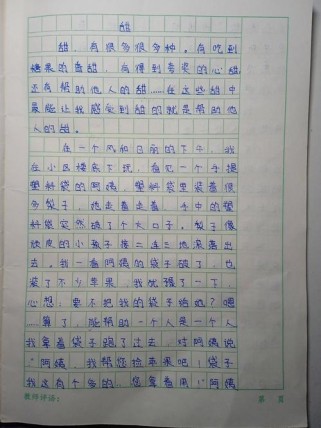 甜
甜,有很多很多种。有吃到
糖果的香甜,有得到夸奖的心甜,
还有帮助他人的甜……在这些甜中
最能让我感受到甜的就是帮助他
人的甜。
在一个风和日丽的下午,我
在小区楼底下玩,看见一个手提
塑料袋的阿姨,塑料袋里装着很
多梨子,她走着走着,手中的塑
料袋突然破了个大口子。梨子像
顽皮的小孩子接二连三地滚落出
去。我一看阿姨的袋子破了,也
装了不少苹果,我犹豫了一下,
心想:要不把我的袋子给她?嗯
……算了,能帮助一个人是一个人
我拿着袋子跑了过去,对阿姨说
:“阿姨,我帮您捡起来吧!袋子
我这有个多的,您拿着用!”阿姨
教师评语:
第 页